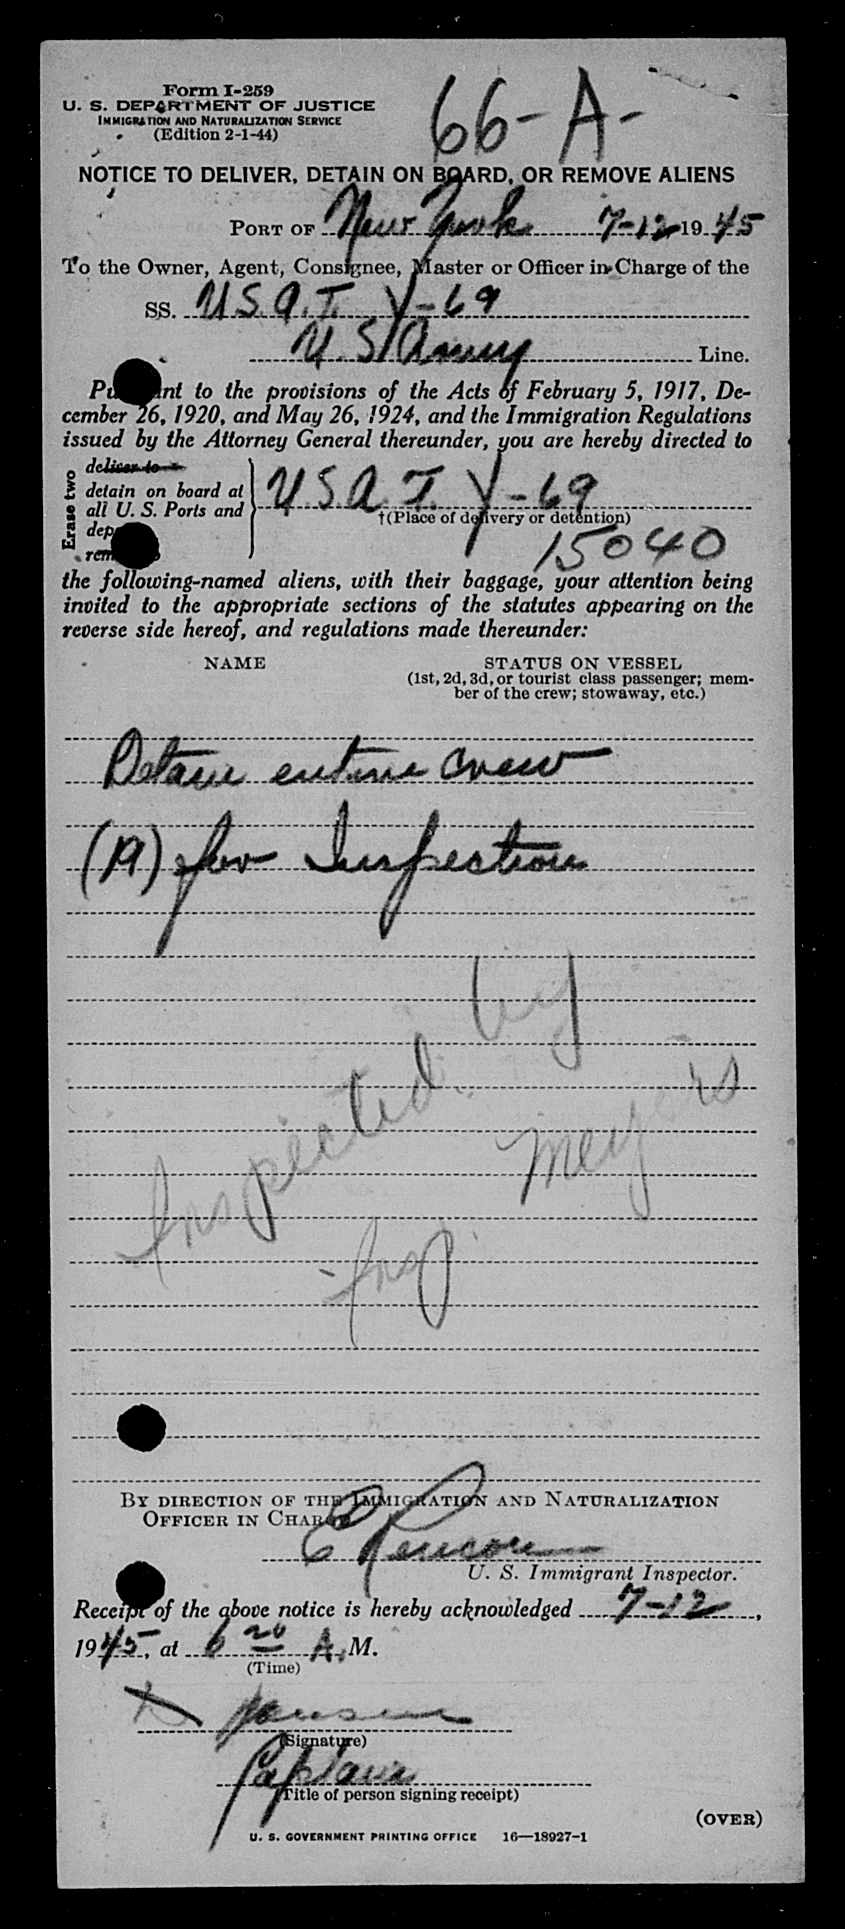 Form I-259
66-A-
U. S. DEPARTMENT OF JUSTICE
IMMIGRATION AND NATURALIZATION SERVICE
(Edition 2-1-44)
NOTICE TO DELIVER, DETAIN ON BOARD, OR REMOVE ALIENS
PORT OF New York 7-12 1945
To the Owner, Agent, Consignee, Master or Officer in Charge of the
SS. U S A. T. Y-69
U. S. Army Line.
Pursuant to the provisions of the Acts of February 5, 1917, De-
cember 26, 1920, and May 26, 1924, and the Immigration Regulations
issued by the Attorney General thereunder, you are hereby directed to
Erase two
deliver to
detain on board at
all U. S. Ports and
U S A T. Y-69
†(Place of delivery or detention)
15040
the following-named aliens, with their baggage, your attention being
invited to the appropriate sections of the statutes appearing on the
reverse side hereof, and regulations made thereunder:
NAME STATUS ON VESSEL
(1st, 2d, 3d, or tourist class passenger; mem-
ber of the crew; stowaway, etc.)
Detain entire crew
(19) for Inspection
Inspected by
Insp Meyers
BY DIRECTION OF THE IMMIGRATION AND NATURALIZATION
OFFICER IN CHARGE
E
U. S. Immigrant Inspector.
Receipt of the above notice is hereby acknowledged 7-12,
1945, at 6 20 A. M.
(Time)
Jensen
(Signature)
Captain
(Title of person signing receipt)
(OVER)
U. S. GOVERNMENT PRINTING OFFICE 16—18927-1